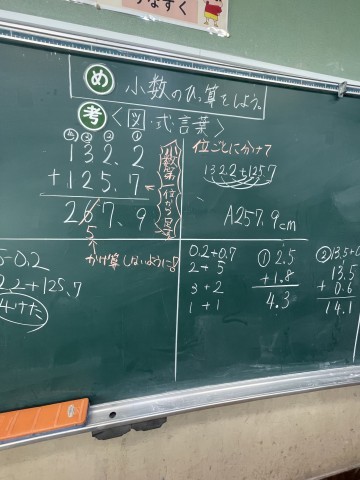 なずく
め 小数のひっ算をしよう。
考 <図・式・言葉>
④ ③ ② ①
132.2
+125.7
267.9
5
小数第一位から足す
かけ算しないように
位ごとに分けて
132.2+125.7
A257.9cm
5-0.2
2.2+125.7
0.2+0.7
2+5
3+2
1+1
① 2.5
+1.8
4.3
② 13.5+0
13.5
+0.6
14.1